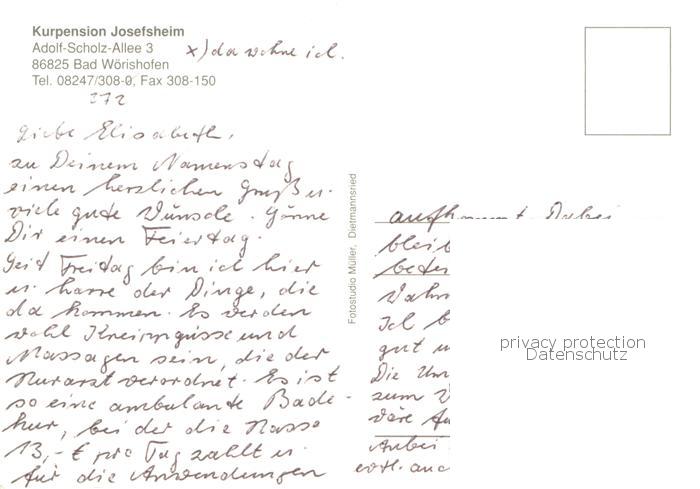 Kurpension Josefsheim
Adolf-Scholz-Allee 3
x) da wohne ich.
86825 Bad Wörishofen
Tel. 08247/308-0, Fax 308-150
272
Liebe Elisabeth,
zu Deinem Namenstag
einen herzlichen Gruß u.
viele gute Wünsche. Gönne
Dir einen Feiertag.
Seit Freitag bin ich hier
u. harre der Dinge, die
da kommen. Es werden
wohl Kneippgüsse und
Massagen sein, die der
Kurarzt verordnet. Es ist
so eine ambulante Bade-
kur, bei der die Kasse
13,- € pro Tag zahlt u.
für die Anwendungen
Fotostudio Müller, Dietmannsried
aufkommt. Dabei
bleib
Ich b
gut u
Die Um
zum W
wäre
Anbei
evtl. auc
privacy protection
Datenschutz